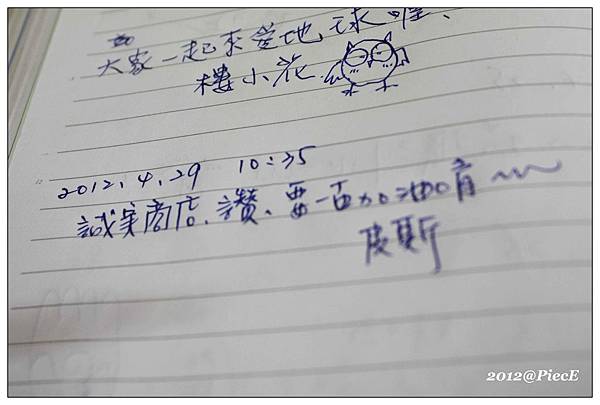 大家一起來愛地球喔、
樓小花
2012.4.29 10:35
誠實商店、讚、要一百加油唷~~
皮斯
2012@PiecE